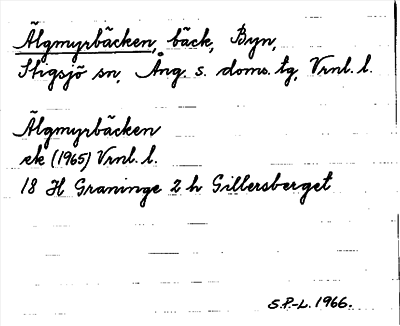 Älgmyrbäcken, bäck, Byn,
Stigsjö sn, Ång. s. doms. tg, Vrnl. l.
Älgmyrbäcken
ek (1965) Vrnl. l.
18 H Graninge 2 h Gillersberget
S.P.-L. 1966.